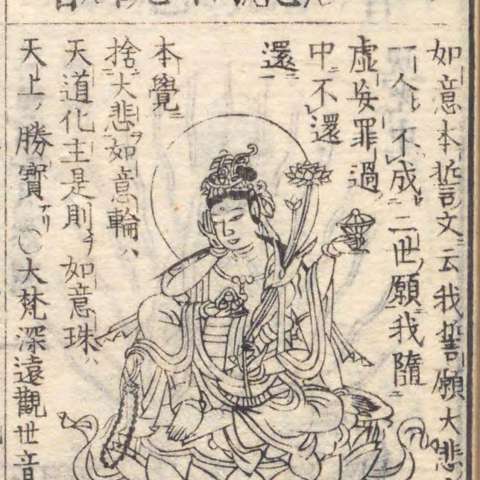 如意本誓文云我誓願大悲
一人不成二世願我隨
虚妄罪過
中不還
還
本覺
捨大悲如意輪ハ
天道化主是則チ如意珠ハ
天上ノ勝寶ナリ〇大梵深遠觀世音